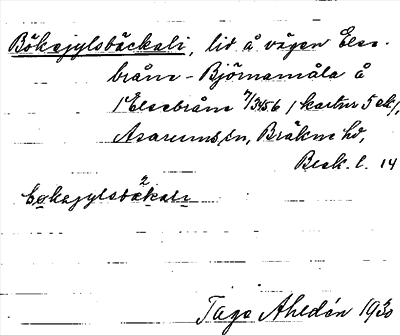 Bökegylsbäckali, lid å vägen Else-
bråne - Björnamåla å
1 Elsebråne 7/3456 / kartnr 5 ek/,
Asarums sn, Bräkne hd,
Besk. l. 14
2
bökagylsbäkali
Tage Ahldén 1930